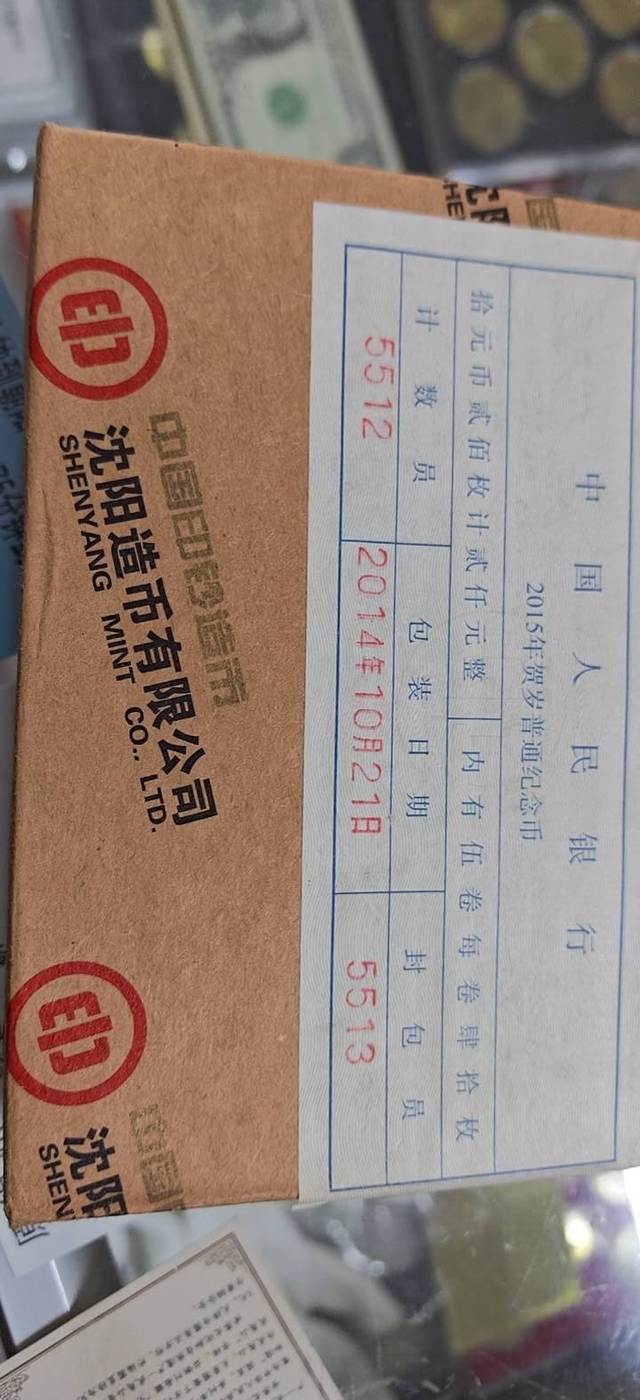 中国人民银行
2015年贺岁普通纪念币
拾元币贰佰枚计贰仟元整 内有伍卷每卷肆拾枚
计数员 包装日期 封包员
5512 2014年10月21日 5513
中国印钞造币
沈阳造币有限公司
SHENYANG MINT CO., LTD.
沈阳
SHEN